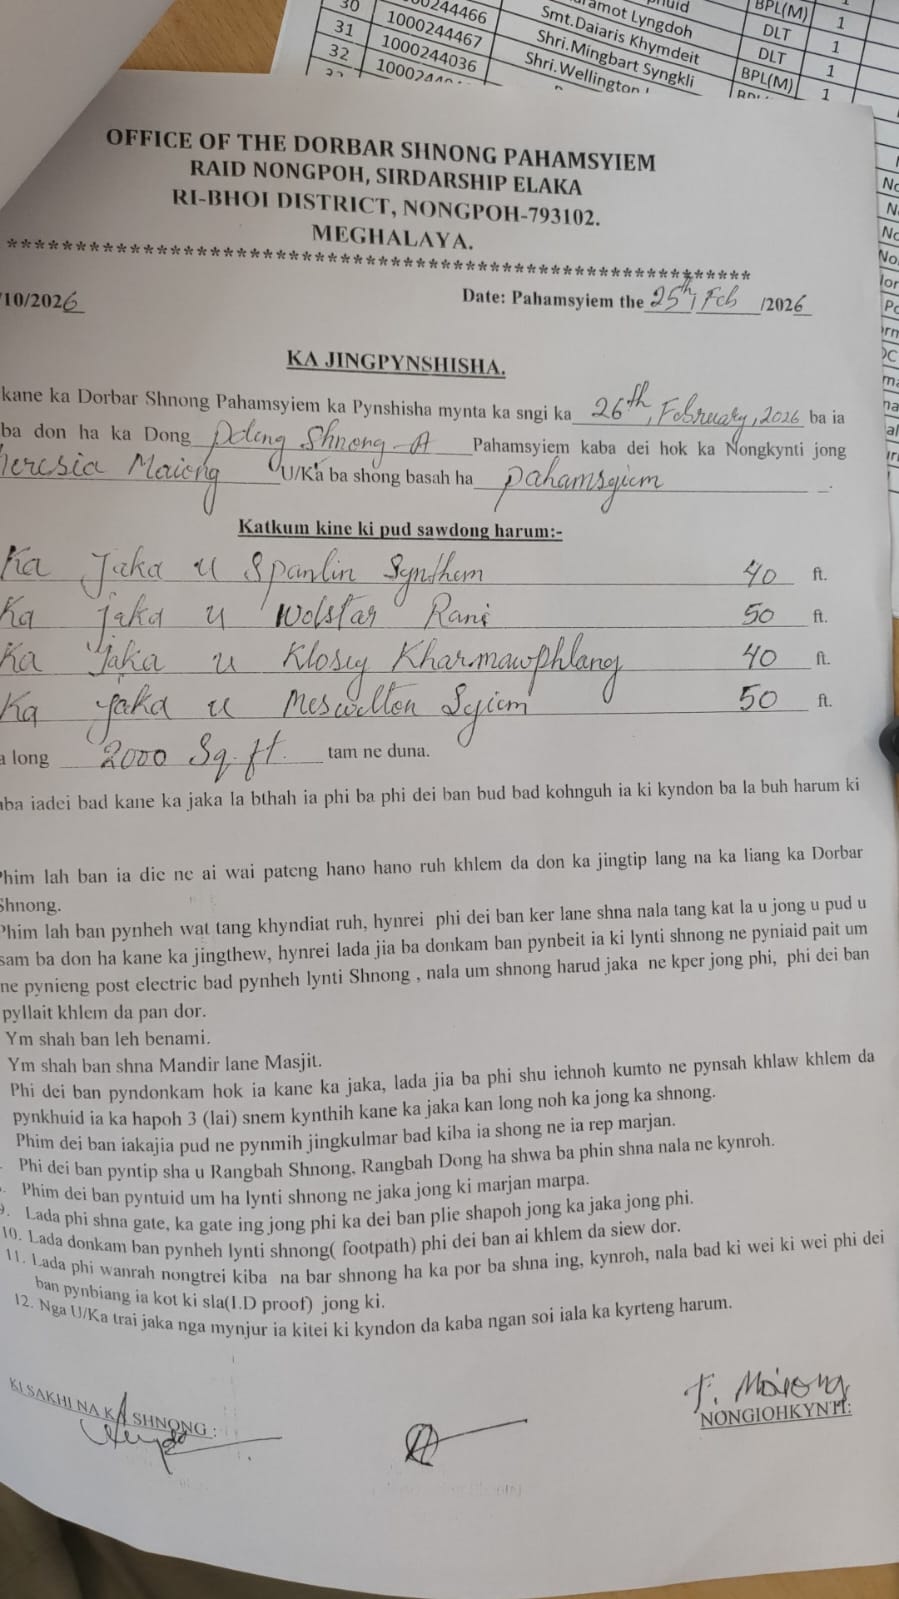 30 1000244466 ramot Lyngdoh BPL(M) 1
31 1000244467 Smt.Daiaris Khymdeit DLT 1
32 1000244036 Shri.Mingbart Syngkli DLT 1
Shri.Wellington BPL(M) 1
OFFICE OF THE DORBAR SHNONG PAHAMSYIEM
RAID NONGPOH, SIRDARSHIP ELAKA
RI-BHOI DISTRICT, NONGPOH-793102.
MEGHALAYA.
*******************************************************
/10/2026 Date: Pahamsyiem the 25th / Feb /2026
KA JINGPYNSHISHA.
kane ka Dorbar Shnong Pahamsyiem ka Pynshisha mynta ka sngi ka 26th, February, 2026 ba ia
ba don ha ka Dong Pdeng Shnong-A Pahamsyiem kaba dei hok ka Nongkynti jong
heresia Mairong U/Ka ba shong basah ha pahamsyiem .
Katkum kine ki pud sawdong harum:-
Ka Jaka u Spanlin Synthem 40 ft.
Ka jaka u Wolstar Rani 50 ft.
Ka Jaka u Klosey Kharmawphlang 40 ft.
Ka jaka u Meswilton Syiem 50 ft.
a long 2000 Sq.ft. tam ne duna.
aba iadei bad kane ka jaka la bthah ia phi ba phi dei ban bud bad kohnguh ia ki kyndon ba la buh harum ki
Phim lah ban ia die ne ai wai pateng hano hano ruh khlem da don ka jingtip lang na ka liang ka Dorbar
Shnong.
Phim lah ban pynheh wat tang khyndiat ruh, hynrei phi dei ban ker lane shna nala tang kat la u jong u pud u
sam ba don ha kane ka jingthew, hynrei lada jia ba donkam ban pynbeit ia ki lynti shnong ne pyniaid pait um
ne pynieng post electric bad pynheh lynti Shnong , nala um shnong harud jaka ne kper jong phi, phi dei ban
pyllait khlem da pan dor.
Ym shah ban leh benami.
Ym shah ban shna Mandir lane Masjit.
Phi dei ban pyndonkam hok ia kane ka jaka, lada jia ba phi shu iehnoh kumto ne pynsah khlaw khlem da
pynkhuid ia ka hapoh 3 (lai) snem kynthih kane ka jaka kan long noh ka jong ka shnong.
Phim dei ban iakajia pud ne pynmih jingkulmar bad kiba ia shong ne ia rep marjan.
Phi dei ban pyntip sha u Rangbah Shnong, Rangbah Dong ha shwa ba phin shna nala ne kynroh.
Phim dei ban pyntuid um ha lynti shnong ne jaka jong ki marjan marpa.
9. Lada phi shna gate, ka gate ing jong phi ka dei ban plie shapoh jong ka jaka jong phi.
10. Lada donkam ban pynheh lynti shnong( footpath) phi dei ban ai khlem da siew dor.
11. Lada phi wanrah nongtrei kiba na bar shnong ha ka por ba shna ing, kynroh, nala bad ki wei ki wei phi dei
ban pynbiang ia kot ki sla(I.D proof) jong ki.
12. Nga U/Ka trai jaka nga mynjur ia kitei ki kyndon da kaba ngan soi iala ka kyrteng harum.
T. Mairong
KI SAKHI NA KA SHNONG : NONGIOHKYNTI: